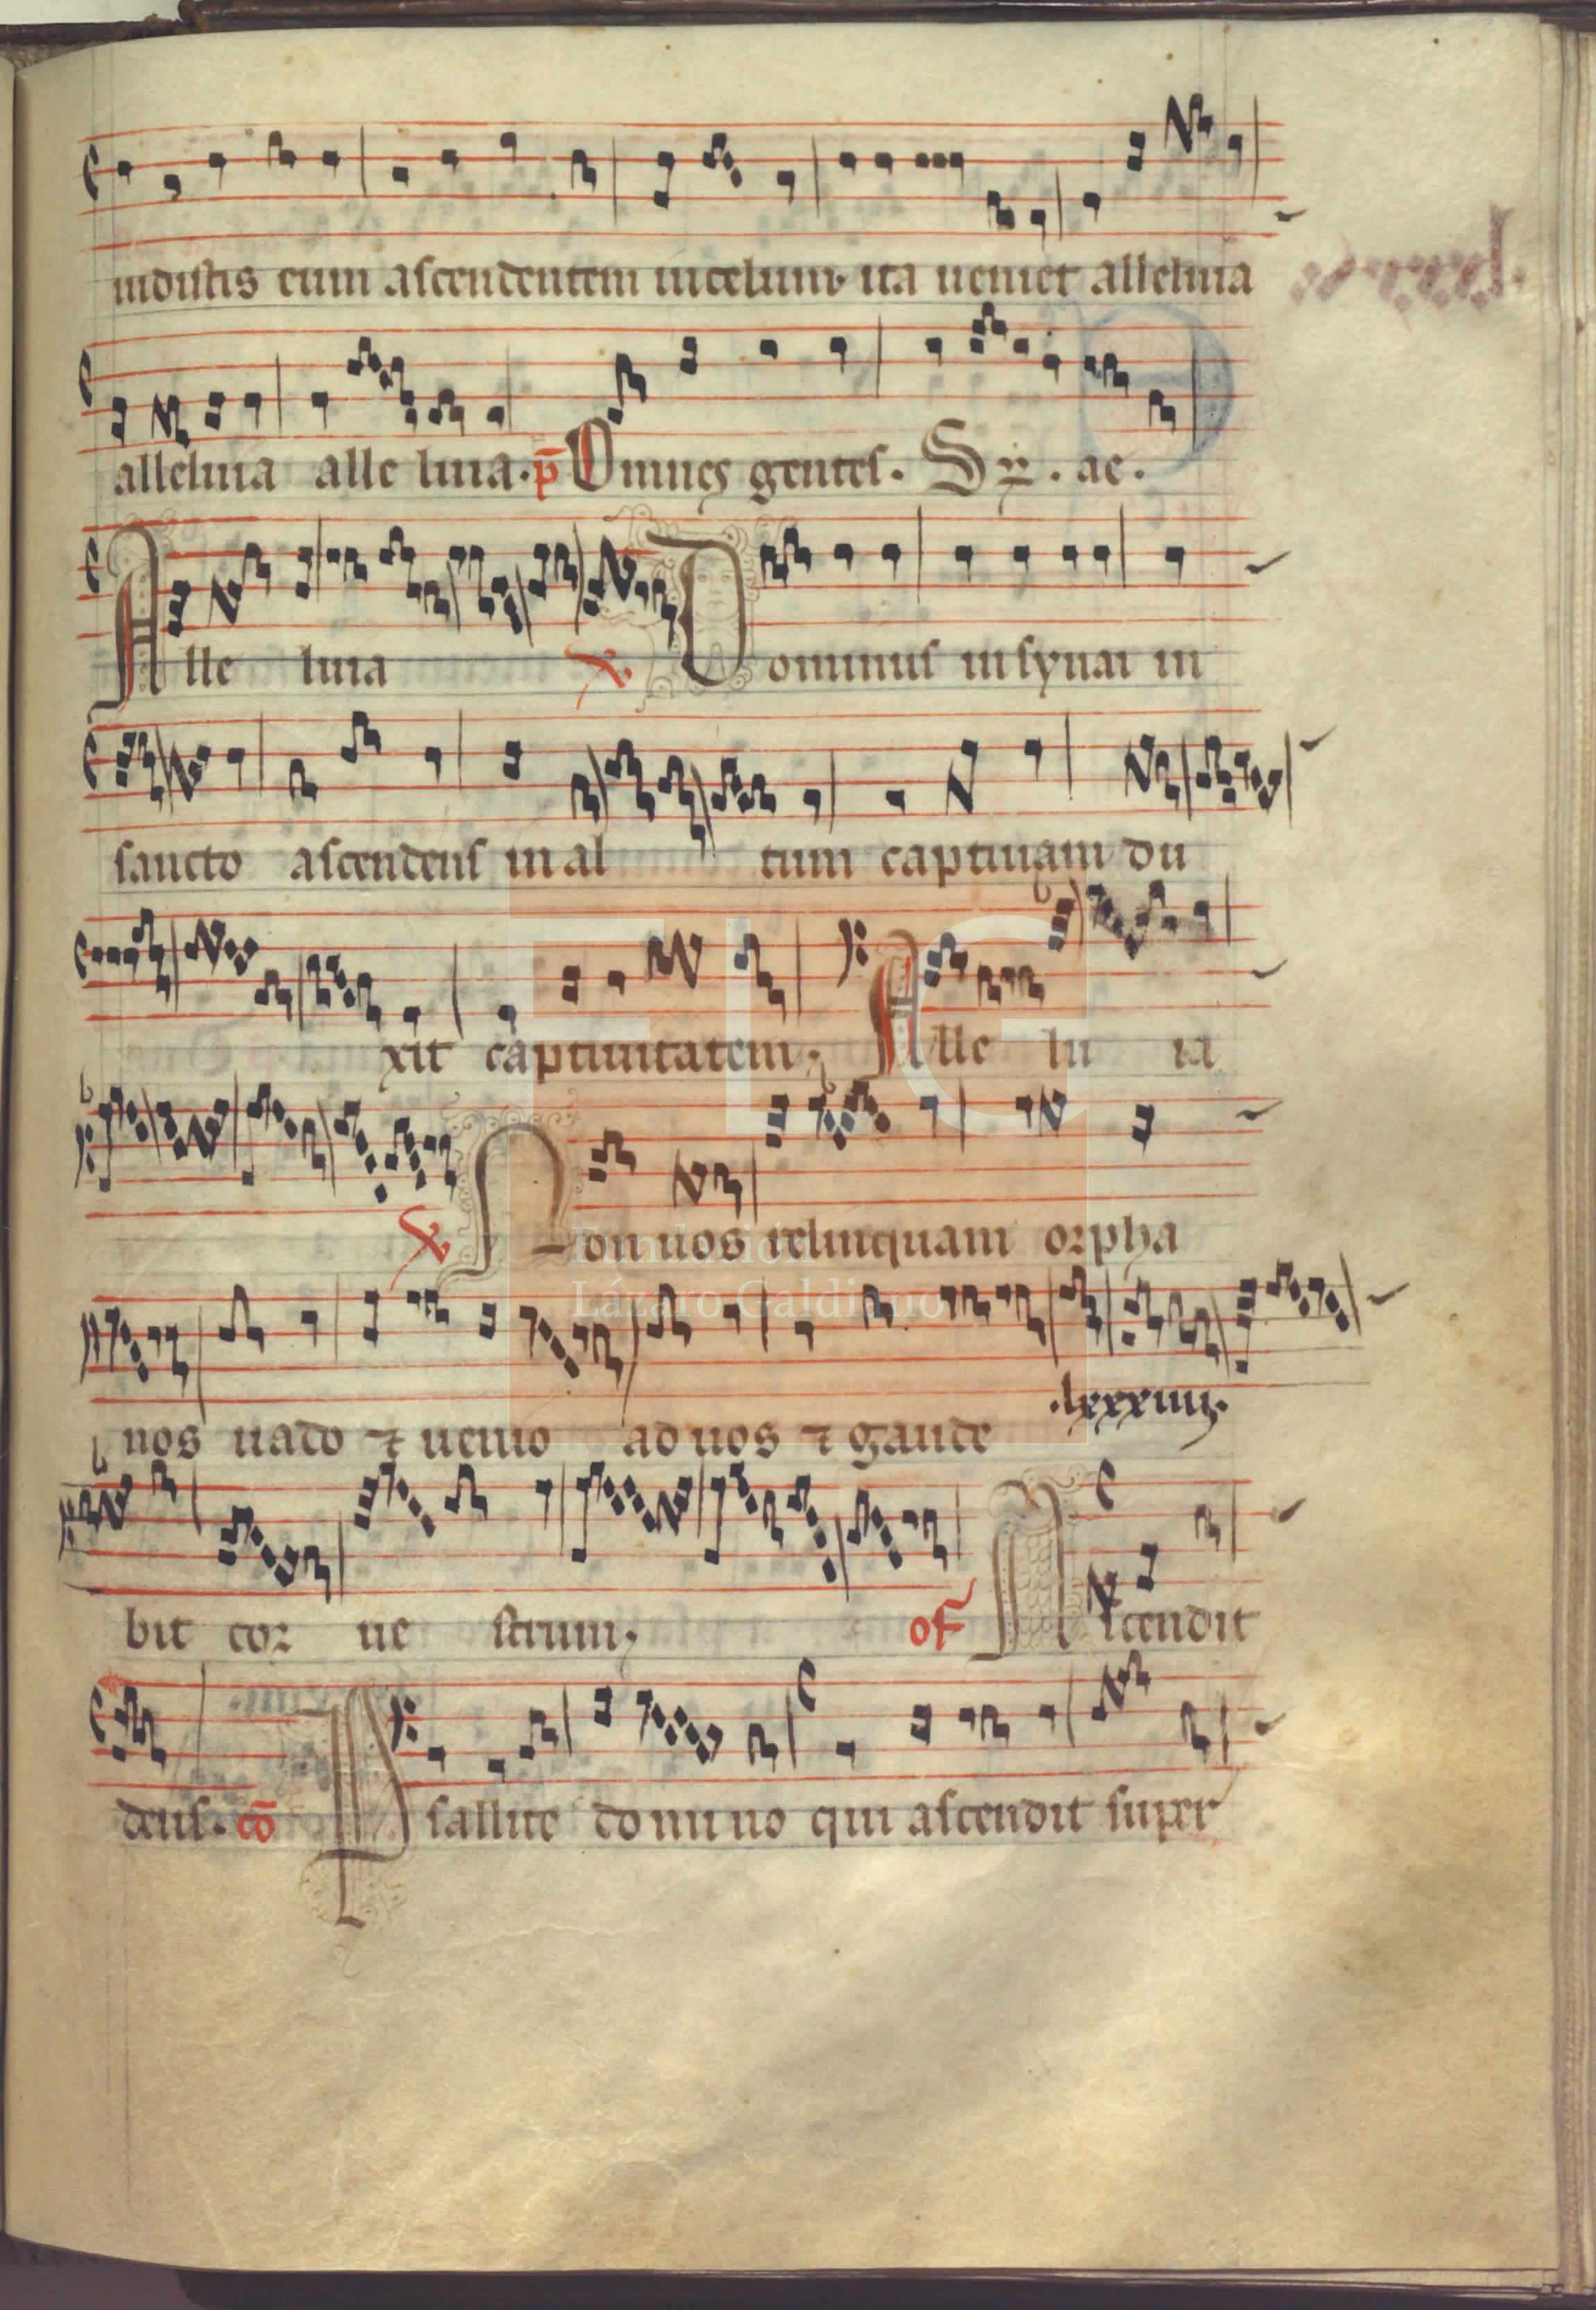 uidistis eum ascendentem in celum ita ueniet alleluia
alleluia alle luia. p̄ Omnes gentes. S . ae.
Alle luia ℣ Dominus in synai in
sancto ascendens in al tum captiuam du
xit captiuitatem. Alle lu ia
℣ Non uos relinquam orpha
.lxxxiiii.
nos uado ⁊ uenio ad uos ⁊ gaude
bit cor ue strum. of Ascendit
deus. cō Psallite domino qui ascendit super
FLG
Fundación
Lázaro Galdiano